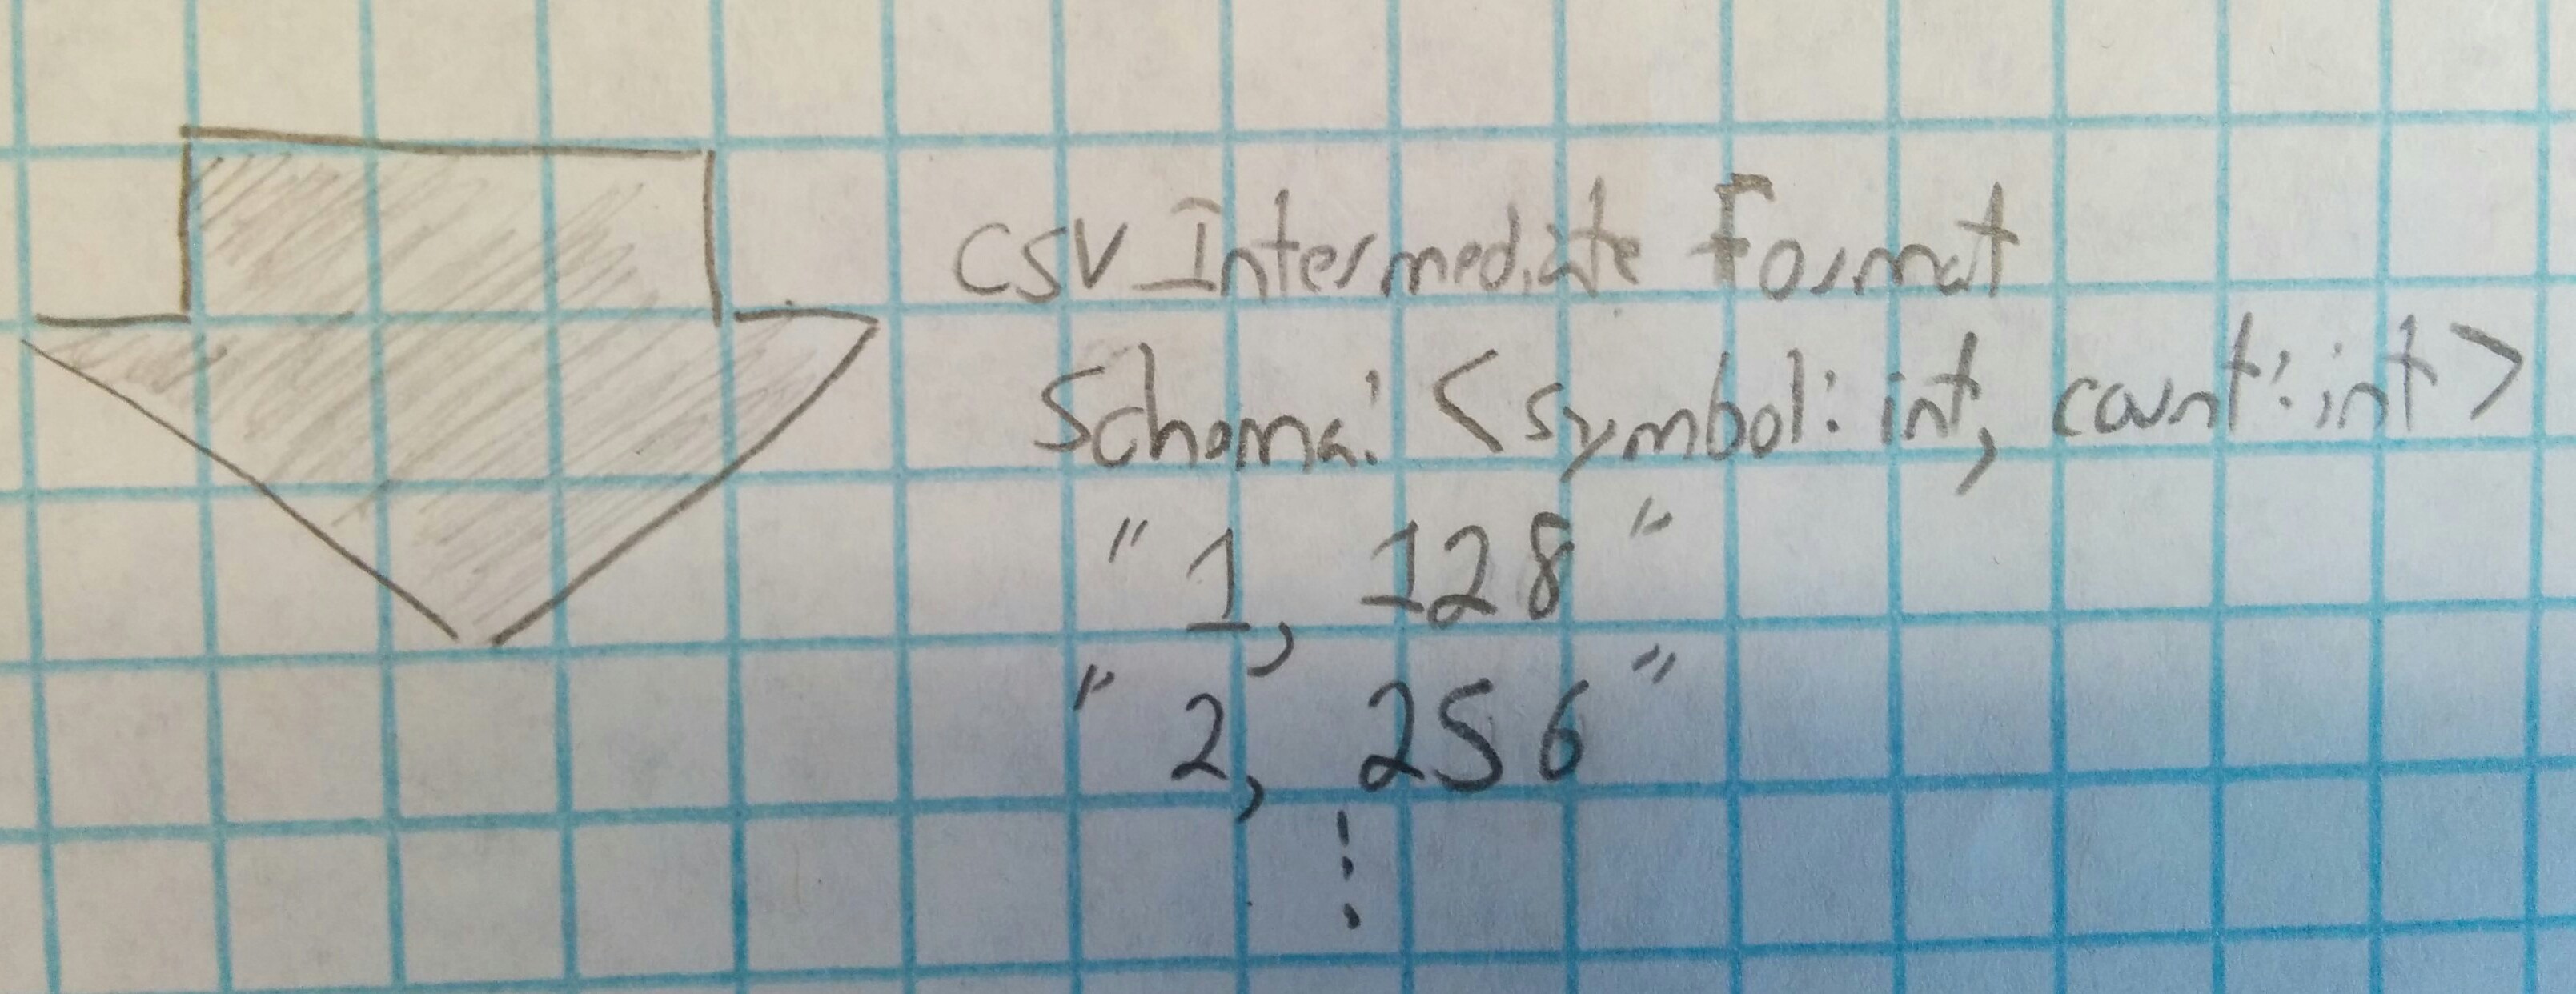 CSV Intermediate Format
Schema: <symbol: int, count: int>
"1, 128"
"2, 256"
⋮